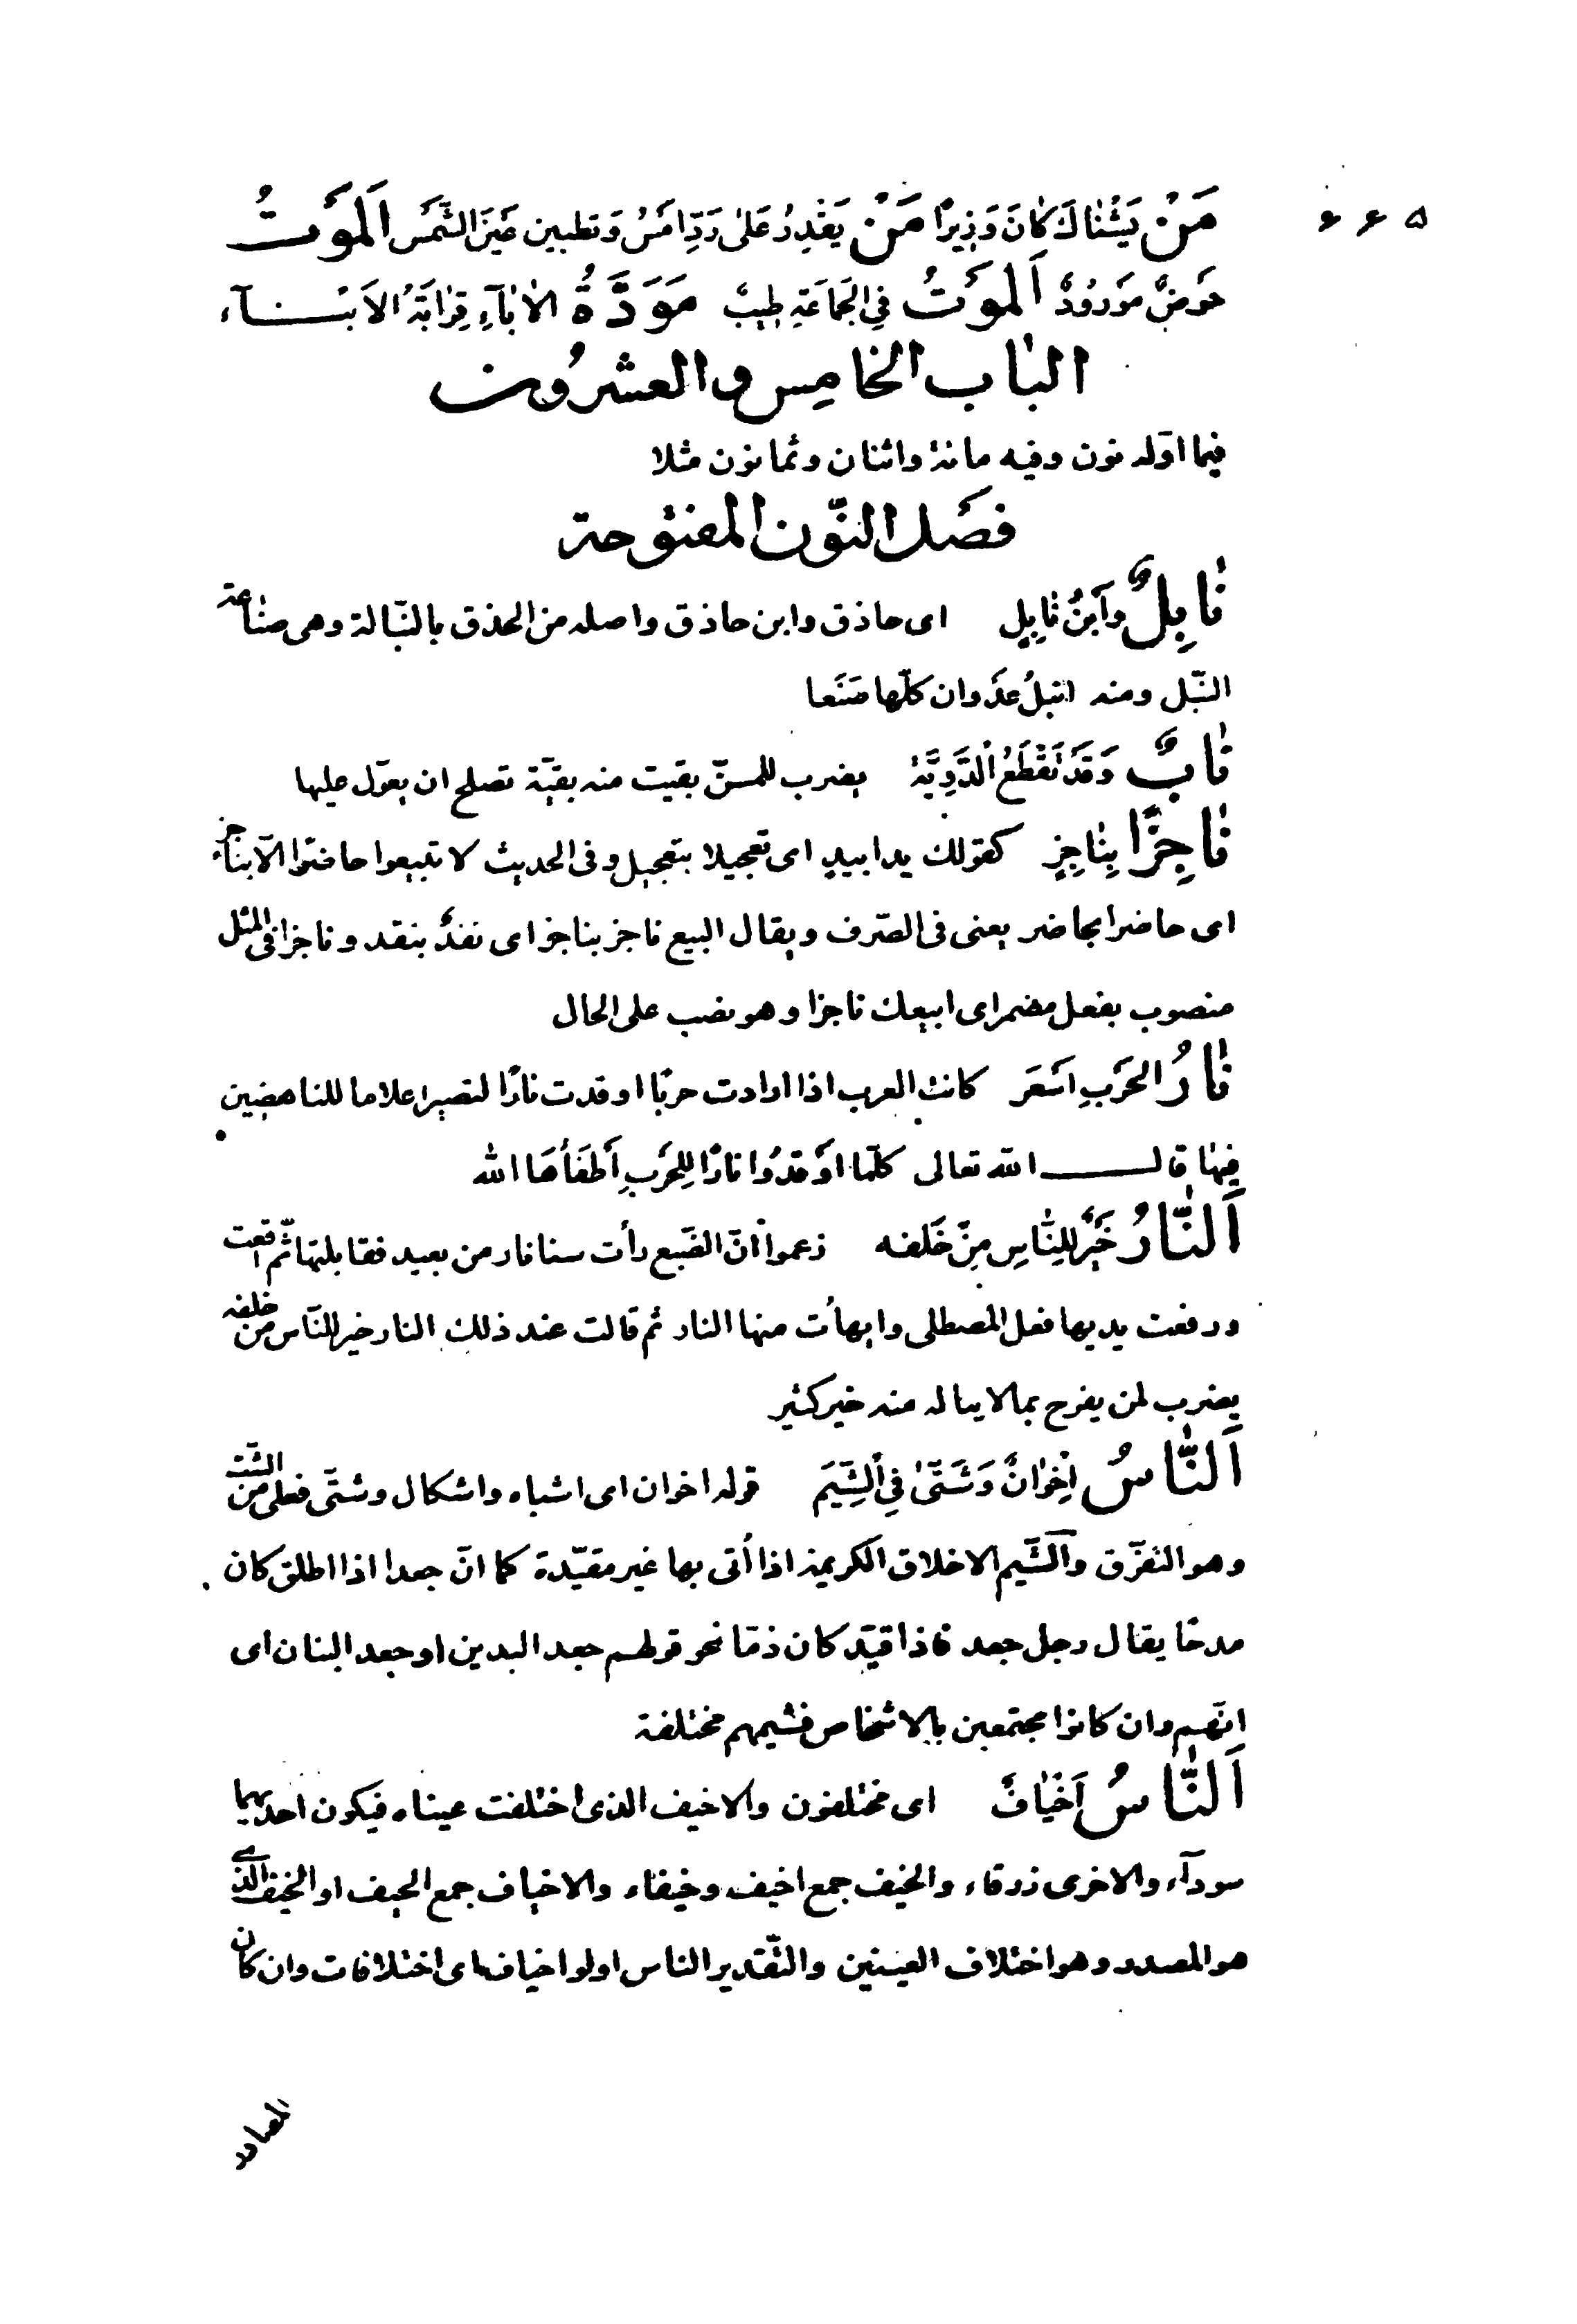 ۶۶۵
مَنْ يَشْنَاكَ كَانَ وَزِيرًا مَنْ يَقْدِرُ عَلىٰ رَدِّ اَمْسُ وَتطيين عَيْنَ الشَّمْس اَلمَوْتُ
حَوضٌ مَوْرُودٌ اَلمَوْتُ فِى الجَمَاعَةِ طِيبٌ مَوَدَّةُ الاٰبَآءِ قِرَابَةُ الاَبْنآء
البَاب الخامِس والعشرُون
فيما اوّله نون وفيه مائة واثنان وثمانون مثلا
فصْل النّون المفتوحة
نَابِلٌ وَابْنُ نَابِلٍ اى حاذق وابن حاذق واصله من الحذق بالنّبالة وهى صنَاعة
النّبل ومنه انبلُ عدْوان كلّها صَنَعا
نَابٌ وَقَدْ تَقْطَعُ الدَّوِيَّةَ يضرب للمسنّ بقيت منه بقيّة تصلح ان يعوّل عليها
نَاجِزًا بِنَاجِزٍ كقولك يدا بيدٍ اى تعجيلا بتعجيل وفى الحديث لا تبيعوا حاضرا الّا بناجز
اى حاضرا بحاضر يعنى فى الصّرف ويقال البيع ناجز بناجز اى نقدٌ بنقد وناجزا فى المثل
منصوب بفعل مضمر اى ابيعك ناجزا وهو نصب على الحال
نَارُ الحَرْبِ اسْعَر كانت العرب اذا ارادت حربًا اوقدت نارًا لتصير اعلاما للناهضين
فيهَا قال الله تعالى كلّما اوْقدُوا نارًا لِلحَرْبِ أطفَأهَا الله
اَلنَّارُ خَيْرٌ لِلنَّاسِ مِنْ خَلفه زعموا انّ الضّبع رأت سنا نار من بعيد فقابلتها ثّم اقعت
ورفعت يديها فعل المصطلى وابهأت منها النار ثم قالت عند ذلك النار خير للنّاس من خلفه
يضرب لمن يفرح بما لا يناله منه خير كثير
اَلنَّاسُ اِخْوَانٌ وَشَتّىٰ فِى الشِّيَم قوله اخوان اى اشباه واشكال وشتّى فعلى من الشّت
وهو التفرّق والشّيم الاخلاق الكريمة اذا أتى بها غير مقيّدة كما انّ جعدا اذا اطلق كان
مدحًا يقال رجل جعد فاذا قيّد كان ذمّا نحو قولهم جعد اليدين او جعد البنان اى
انّهم وان كانوا مجتمعين بالاشخاص فشيمهم مختلفة
اَلنَّاسُ اَخْيَافٌ اى مختلفون والاخيف الذى اختلفت عيناه فيكون احديهما
سودآء والاخرى زرقاء والخيف جمع اخيف وخيفاء والاخياف جمع الخيف او الخيف الّذى
هو المصدر وهو اختلاف العينين والتّقدير الناس اولوا اخياف اى اختلافات وان كان
المصادر